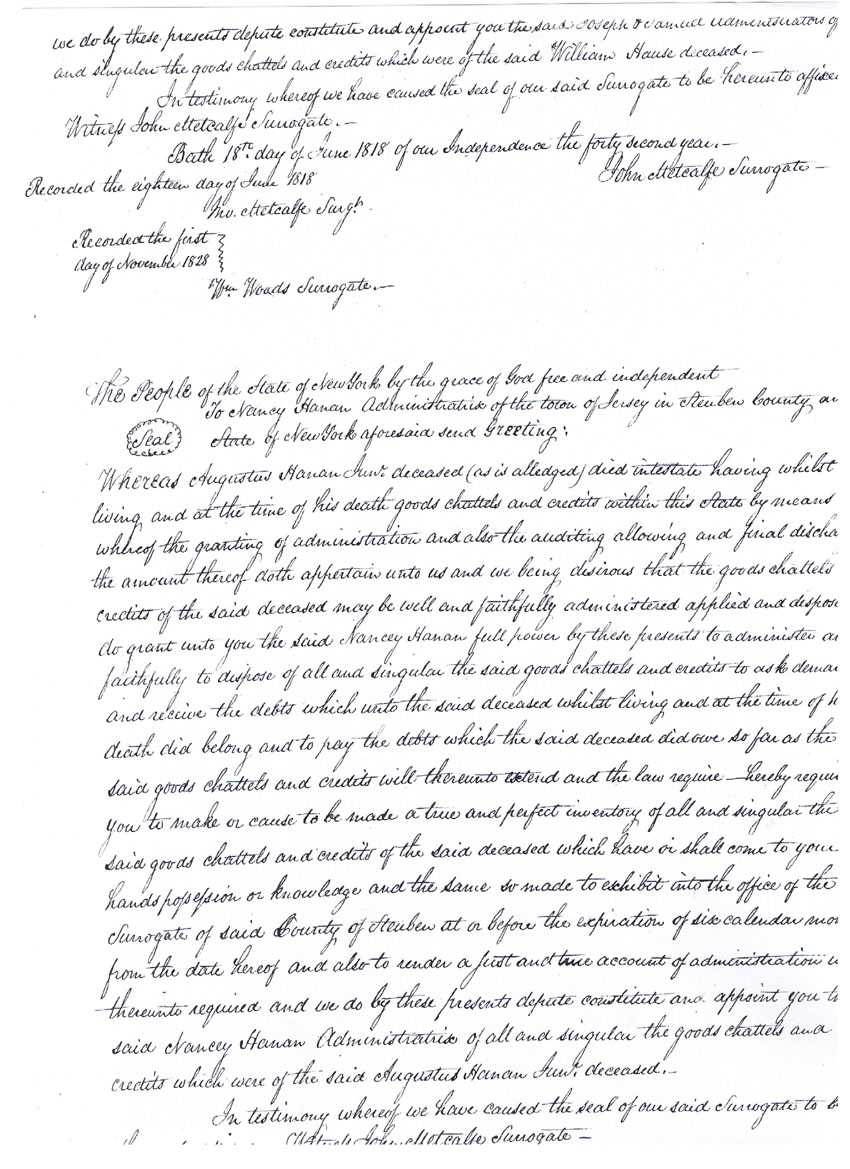 we do by these presents depute constitute and appoint you the said Joseph & Samuel Administrators of
and singular the goods chattels and credits which were of the said William Hause deceased.—
In testimony whereof we have caused the seal of our said Surrogate to be hereunto affixed
Witness John Metcalfe Surrogate.—
Bath 18th day of June 1818 of our Independence the forty second year.—
John Metcalfe Surrogate—
Recorded the eighteen day of June 1818
Jno. Metcalfe Surgt.
Recorded the first
day of November 1828
Wm Woods Surrogate.—
The People of the State of New York by the grace of God free and independent
To Nancy Hanan Administratrix of the town of Jersey in Steuben County an
Seal
State of New York aforesaid send Greeting:
Whereas Augustus Hanan Junr. deceased (as is alledged) died intestate having whilst
living and at the time of his death goods chattels and credits within this State by means
whereof the granting of administration and also the auditing allowing and final discha
the amount thereof doth appertain unto us and we being desirous that the goods chattels
credits of the said deceased may be well and faithfully administered applied and dispose
do grant unto you the said Nancey Hanan full power by these presents to administer an
faithfully to dispose of all and singular the said goods chattels and credits to ask deman
and receive the debts which unto the said deceased whilst living and at the time of h
death did belong and to pay the debts which the said deceased did owe so far as the
said goods chattels and credits will thereunto extend and the law require—hereby requir
you to make or cause to be made a true and perfect inventory of all and singular the
said goods chattels and credits of the said deceased which have or shall come to your
hands possession or knowledge and the same so made to exhibit into the office of the
Surrogate of said County of Steuben at or before the expiration of six calendar mon
from the date hereof and also to render a just and true account of administration w
thereunto required and we do by these presents depute constitute and appoint you th
said Nancey Hanan Administratrix of all and singular the goods chattels and
credits which were of the said Augustus Hanan Junr. deceased.—
In testimony whereof we have caused the seal of our said Surrogate to b
Witness John Metcalfe Surrogate—